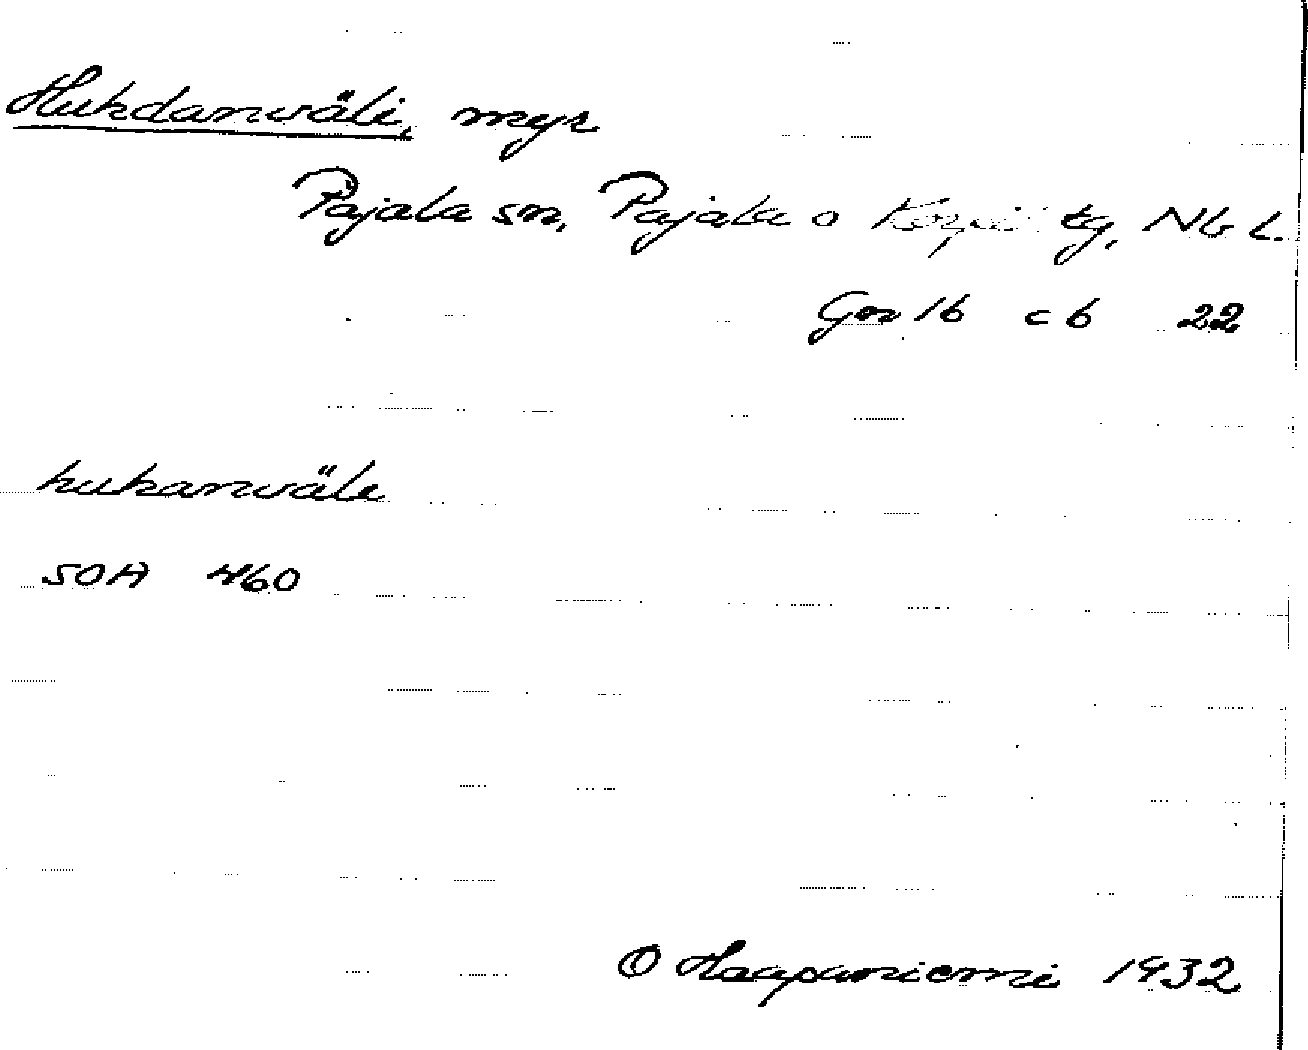 Hukdanwäli, myr
Pajala sn, Pajala o tg, Nb L.
Gn 16 c 6 22
hukanwäli
SOA 460
O Haapaniemi 1932